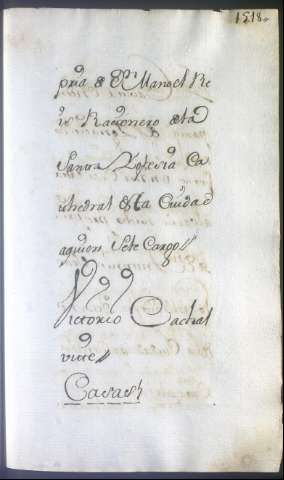 1518.
pría de Dn. Manoel Re
Racionero de la
Santa Yglesia Ca
thedral de la Ciudad
aquien se le Cargo
Victorio Cachal
vitte
Casash